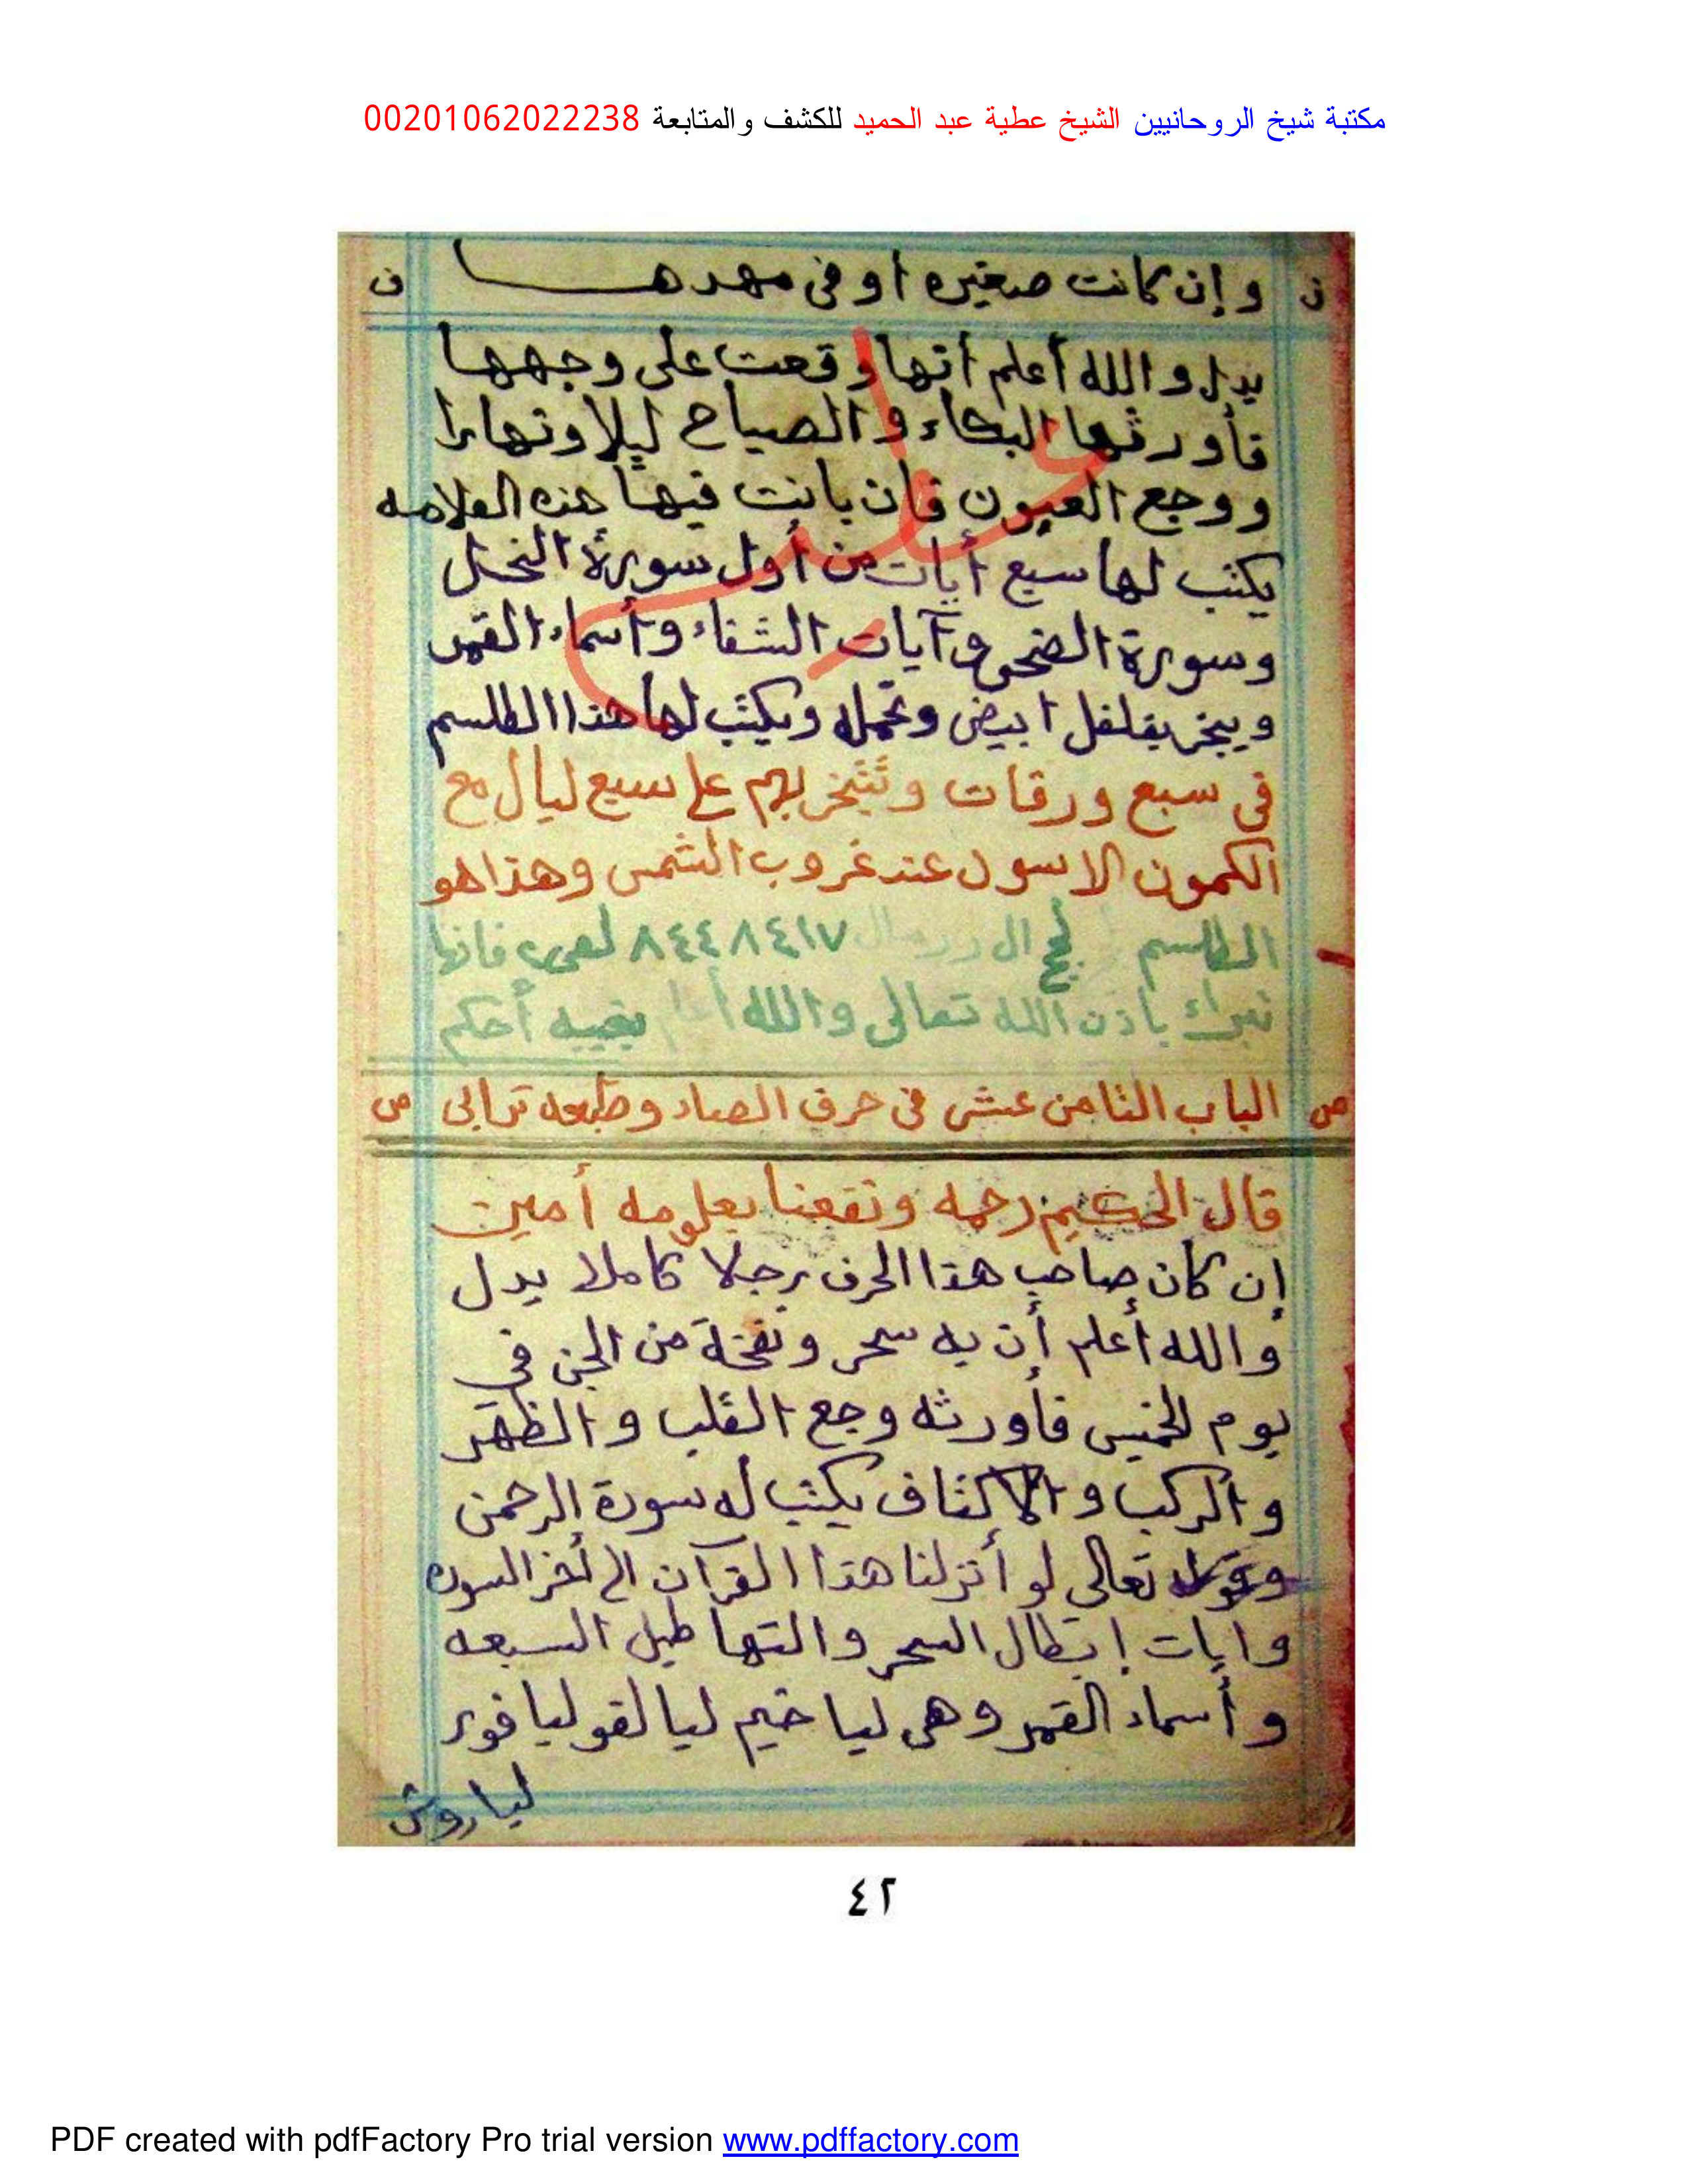 مكتبة شيخ الروحانيين الشيخ عطية عبد الحميد للكشف والمتابعة 00201062022238
ن وإن كانت صغيره أو فى مهدها ن
يدل والله أعلم أنها وقعت على وجهها
فأورثها البكاء والصياح ليلا ونهارا
ووجع العيون فان بانت فيها هذه العلامه
يكتب لها سبع أيات من أول سورة النحل
وسورة الضحى وآيات الشفاء وأسماء القمر
ويبخر بفلفل ابيض وتحمله ويكتب لها هذا الطلسم
فى سبع ورقات وتتبخر بهم على سبع ليال مع
الكمون الاسود عند غروب الشمس وهذا هو
الطلسم ال ٨٤٤٨٤١٧ فانها
تبرأ باذن الله تعالى والله أعلم بغيبه أحكم
ص الباب الثامن عشر فى حرف الصاد وطبعه ترابى ص
قال الحكيم رحمه ونفعنا بعلومه أمين
إن كان صاحب هذا الحرف رجلا كاملا يدل
والله أعلم أن به سحر ونفخة من الجن فى
يوم الخميس فأورثه وجع القلب والظهر
والركب والاكتاف يكتب له سورة الرحمن
وقوله تعالى لو أنزلنا هذا القرآن الى أخر السوره
وايات إبطال السحر والتهاطيل السبعه
وأسماء القمر وهى ليا خيم ليا لغو ليا فور
ليا روش
٤٢
PDF created with pdfFactory Pro trial version www.pdffactory.com